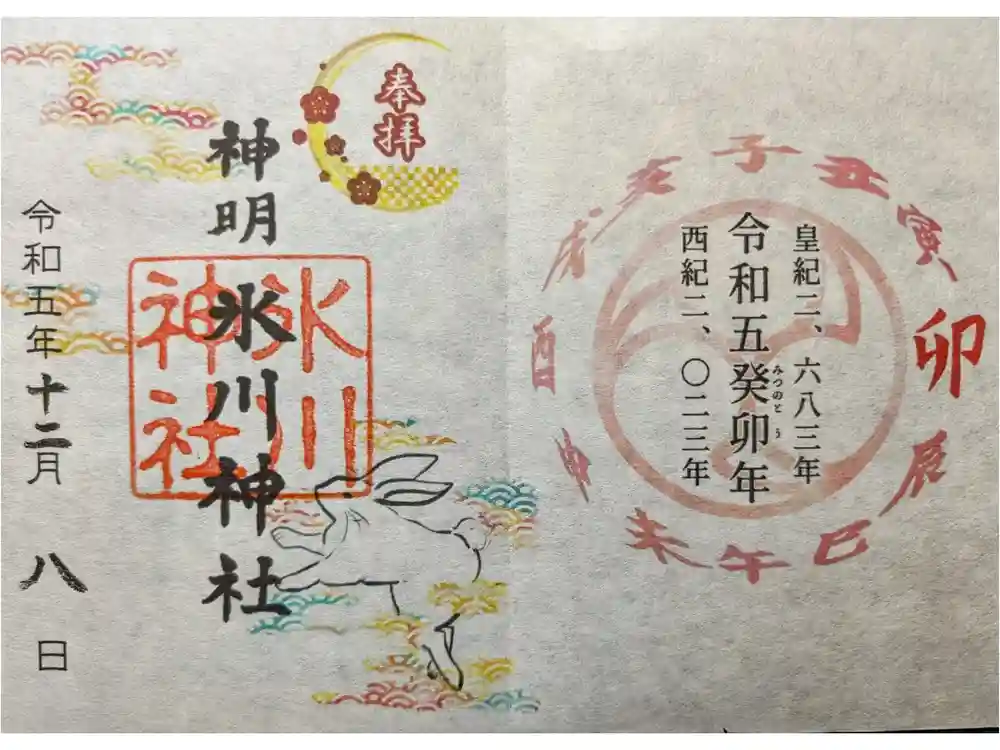 皇紀二、六八三年
令和五癸卯年
みつのとう
西紀二、〇二三年
子
丑
寅
卯
辰
巳
午
未
申
酉
戌
亥
奉拝
神明氷川神社
氷川
神社
令和五年十二月八日